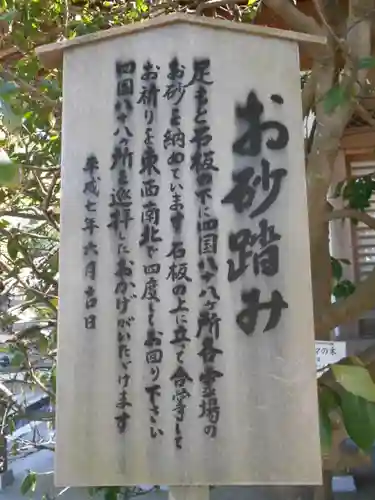 お砂踏み
足もと石板の下に四国八十八ケ所各霊場の
お砂を納めています 石板の上に立て合掌して
お祈りを東西南北で四度してお回り下さい
四国八十八ヶ所を巡拝したおかげがいただけます
平成七年六月吉日
の木